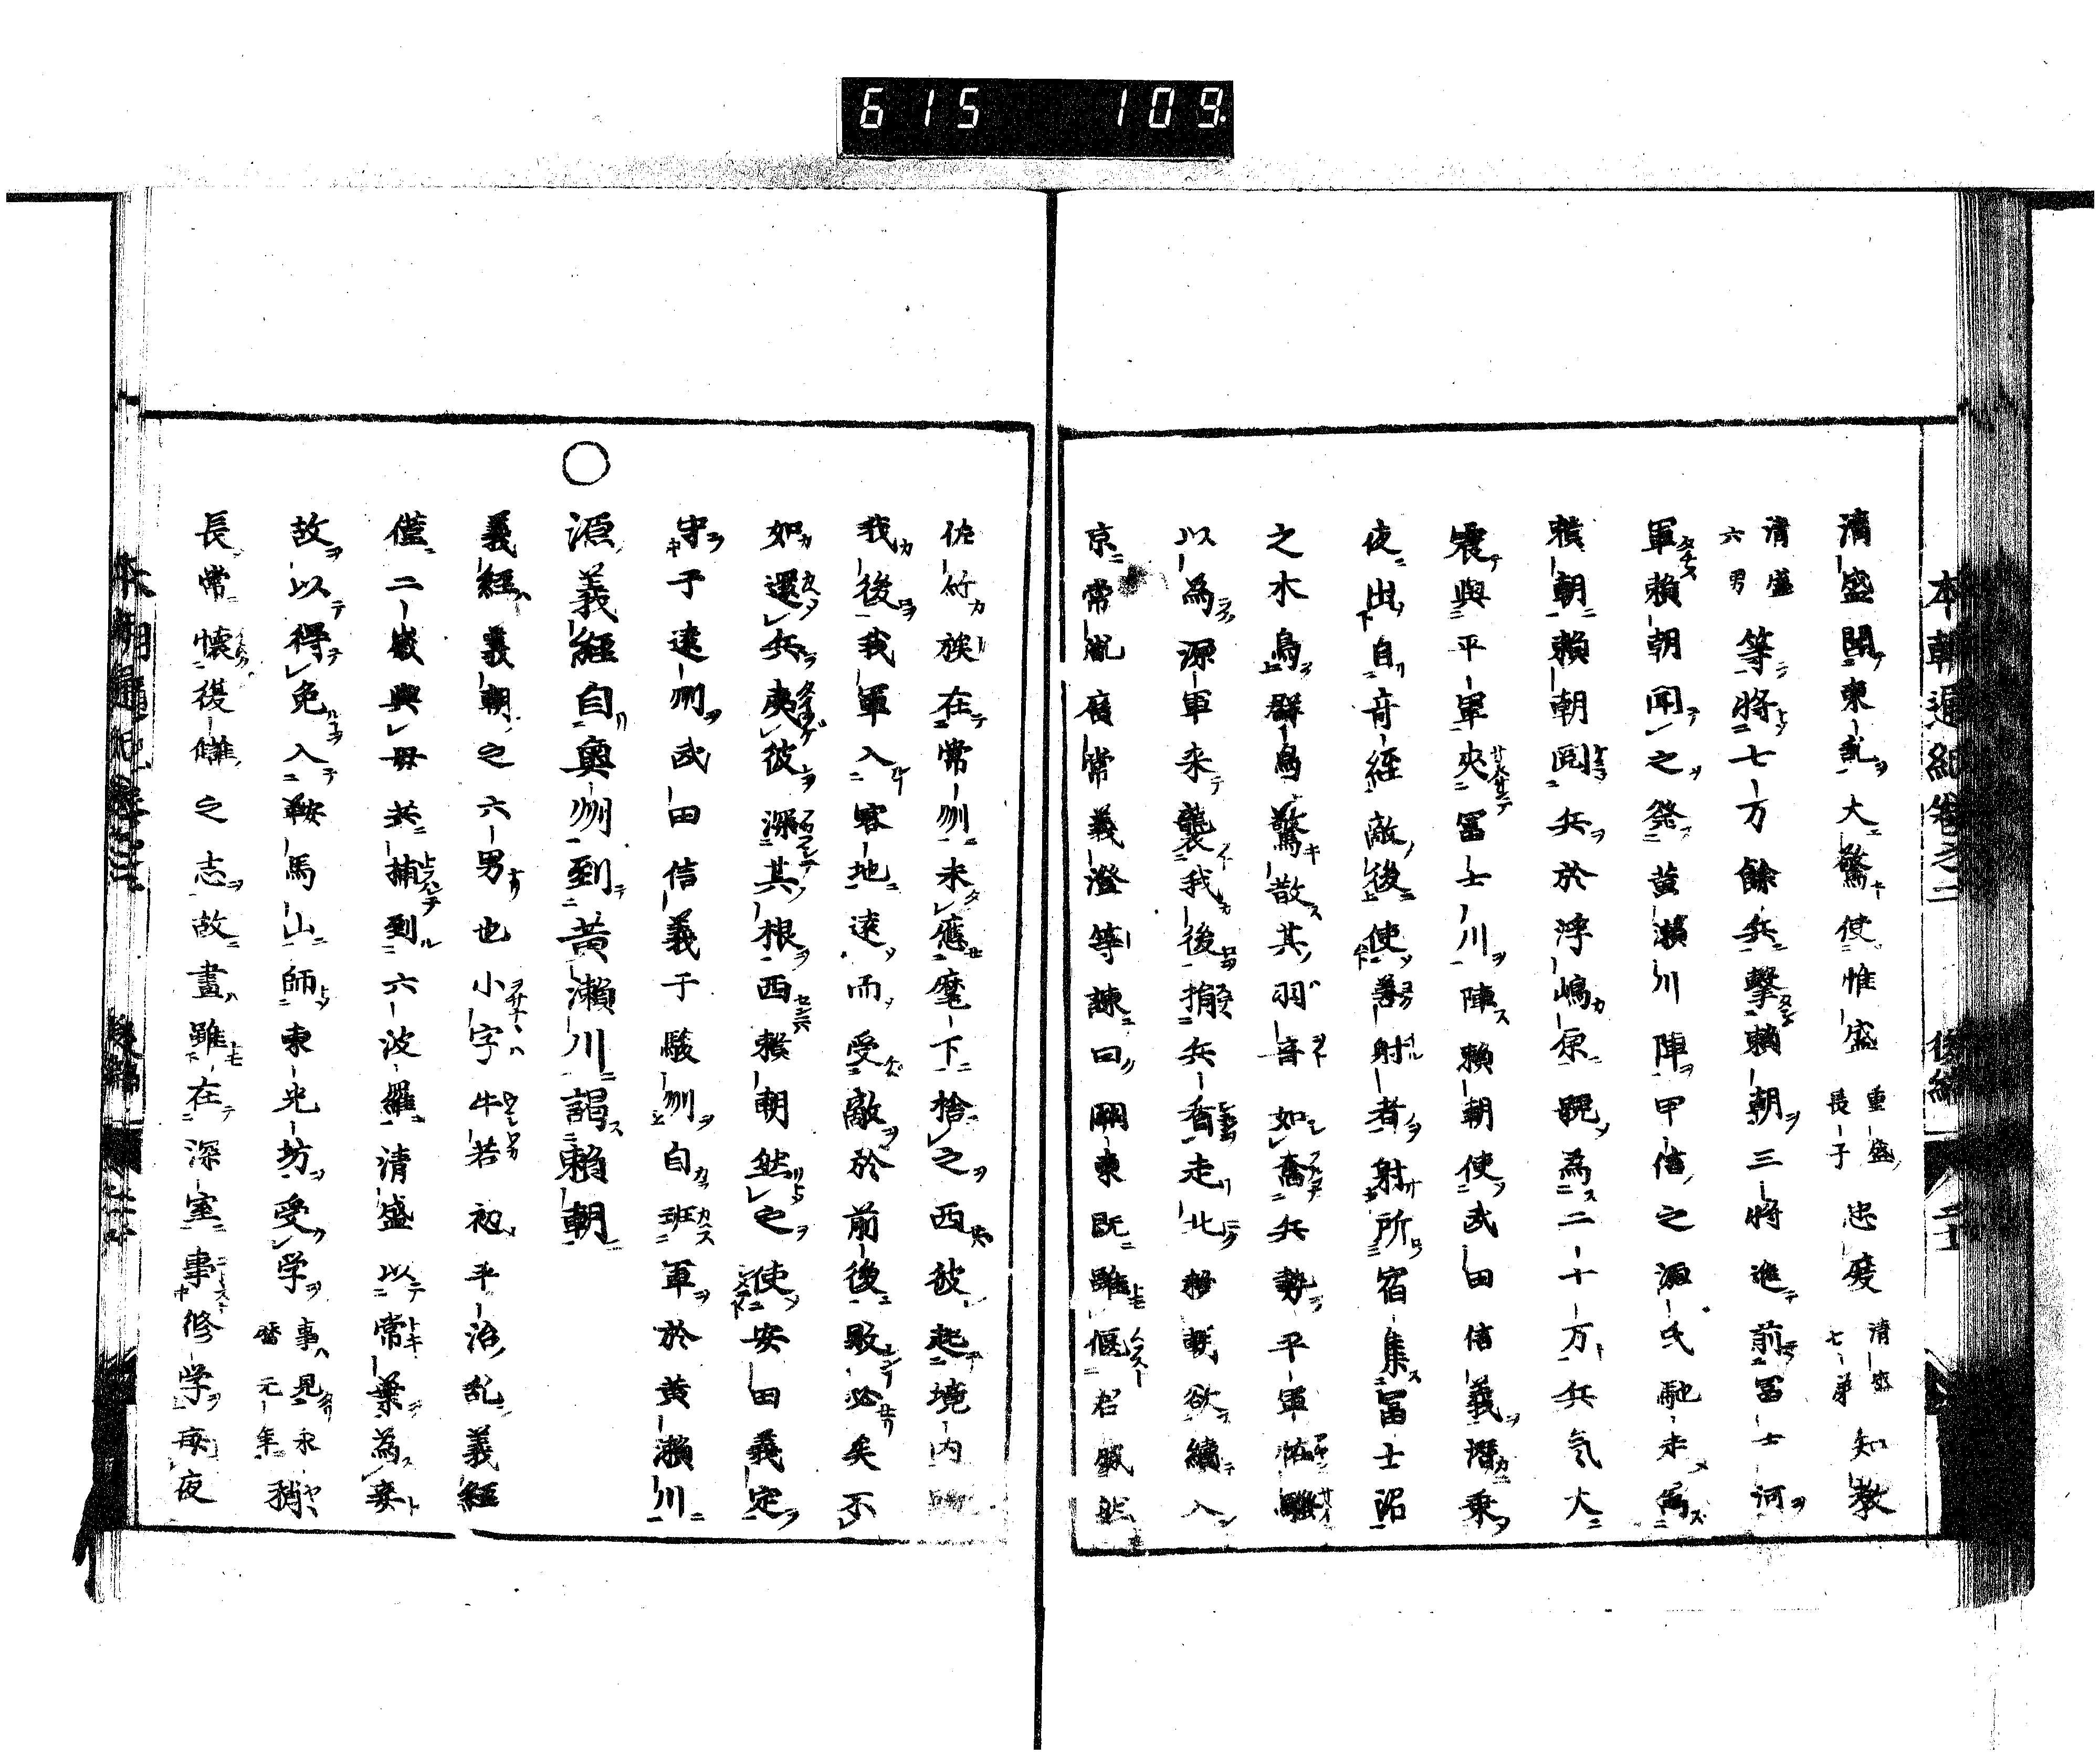 615 109
本朝通紀卷之二 後編 二十
清盛聞東乱大驚使惟盛重盛長子忠度清盛七弟知教
清盛六男等將七万餘兵擊賴朝三將進前冨士河
軍賴朝聞之発黄瀬川陣甲信之源氏馳来為
賴朝賴朝閲兵於浮嶋原既為二十万兵気大
震與平軍夾冨士川陣賴朝使武田信義潜乗
夜出自竒径敵後使善射者射所宿集冨士沼
之水鳥群鳥驚散其羽音如奮兵勢平軍怖騒
以為源軍来襲我後捐兵看走北賴朝欲續入
京常胤廣常義澄等諫曰關東既雖偃君威然
佐竹族在常州未應麾下捨之西彼起境内
我後我軍入客地遠而受敵於前後敗必矣不
如還兵夷彼深其根西賴朝然之使安田義定
守于遠州武田信義于駿州自班軍於黄瀬川
○源義経自奥州到黄瀬川謁賴朝
義経義朝之六男也小字牛若初平治乱義経
僅二歳與母共捕到六波羅清盛以常葉為妾
故以得免入鞍馬山師東光坊受学事見永暦元年稍
長常懐復讎之志故晝雖在深室事修学毎夜